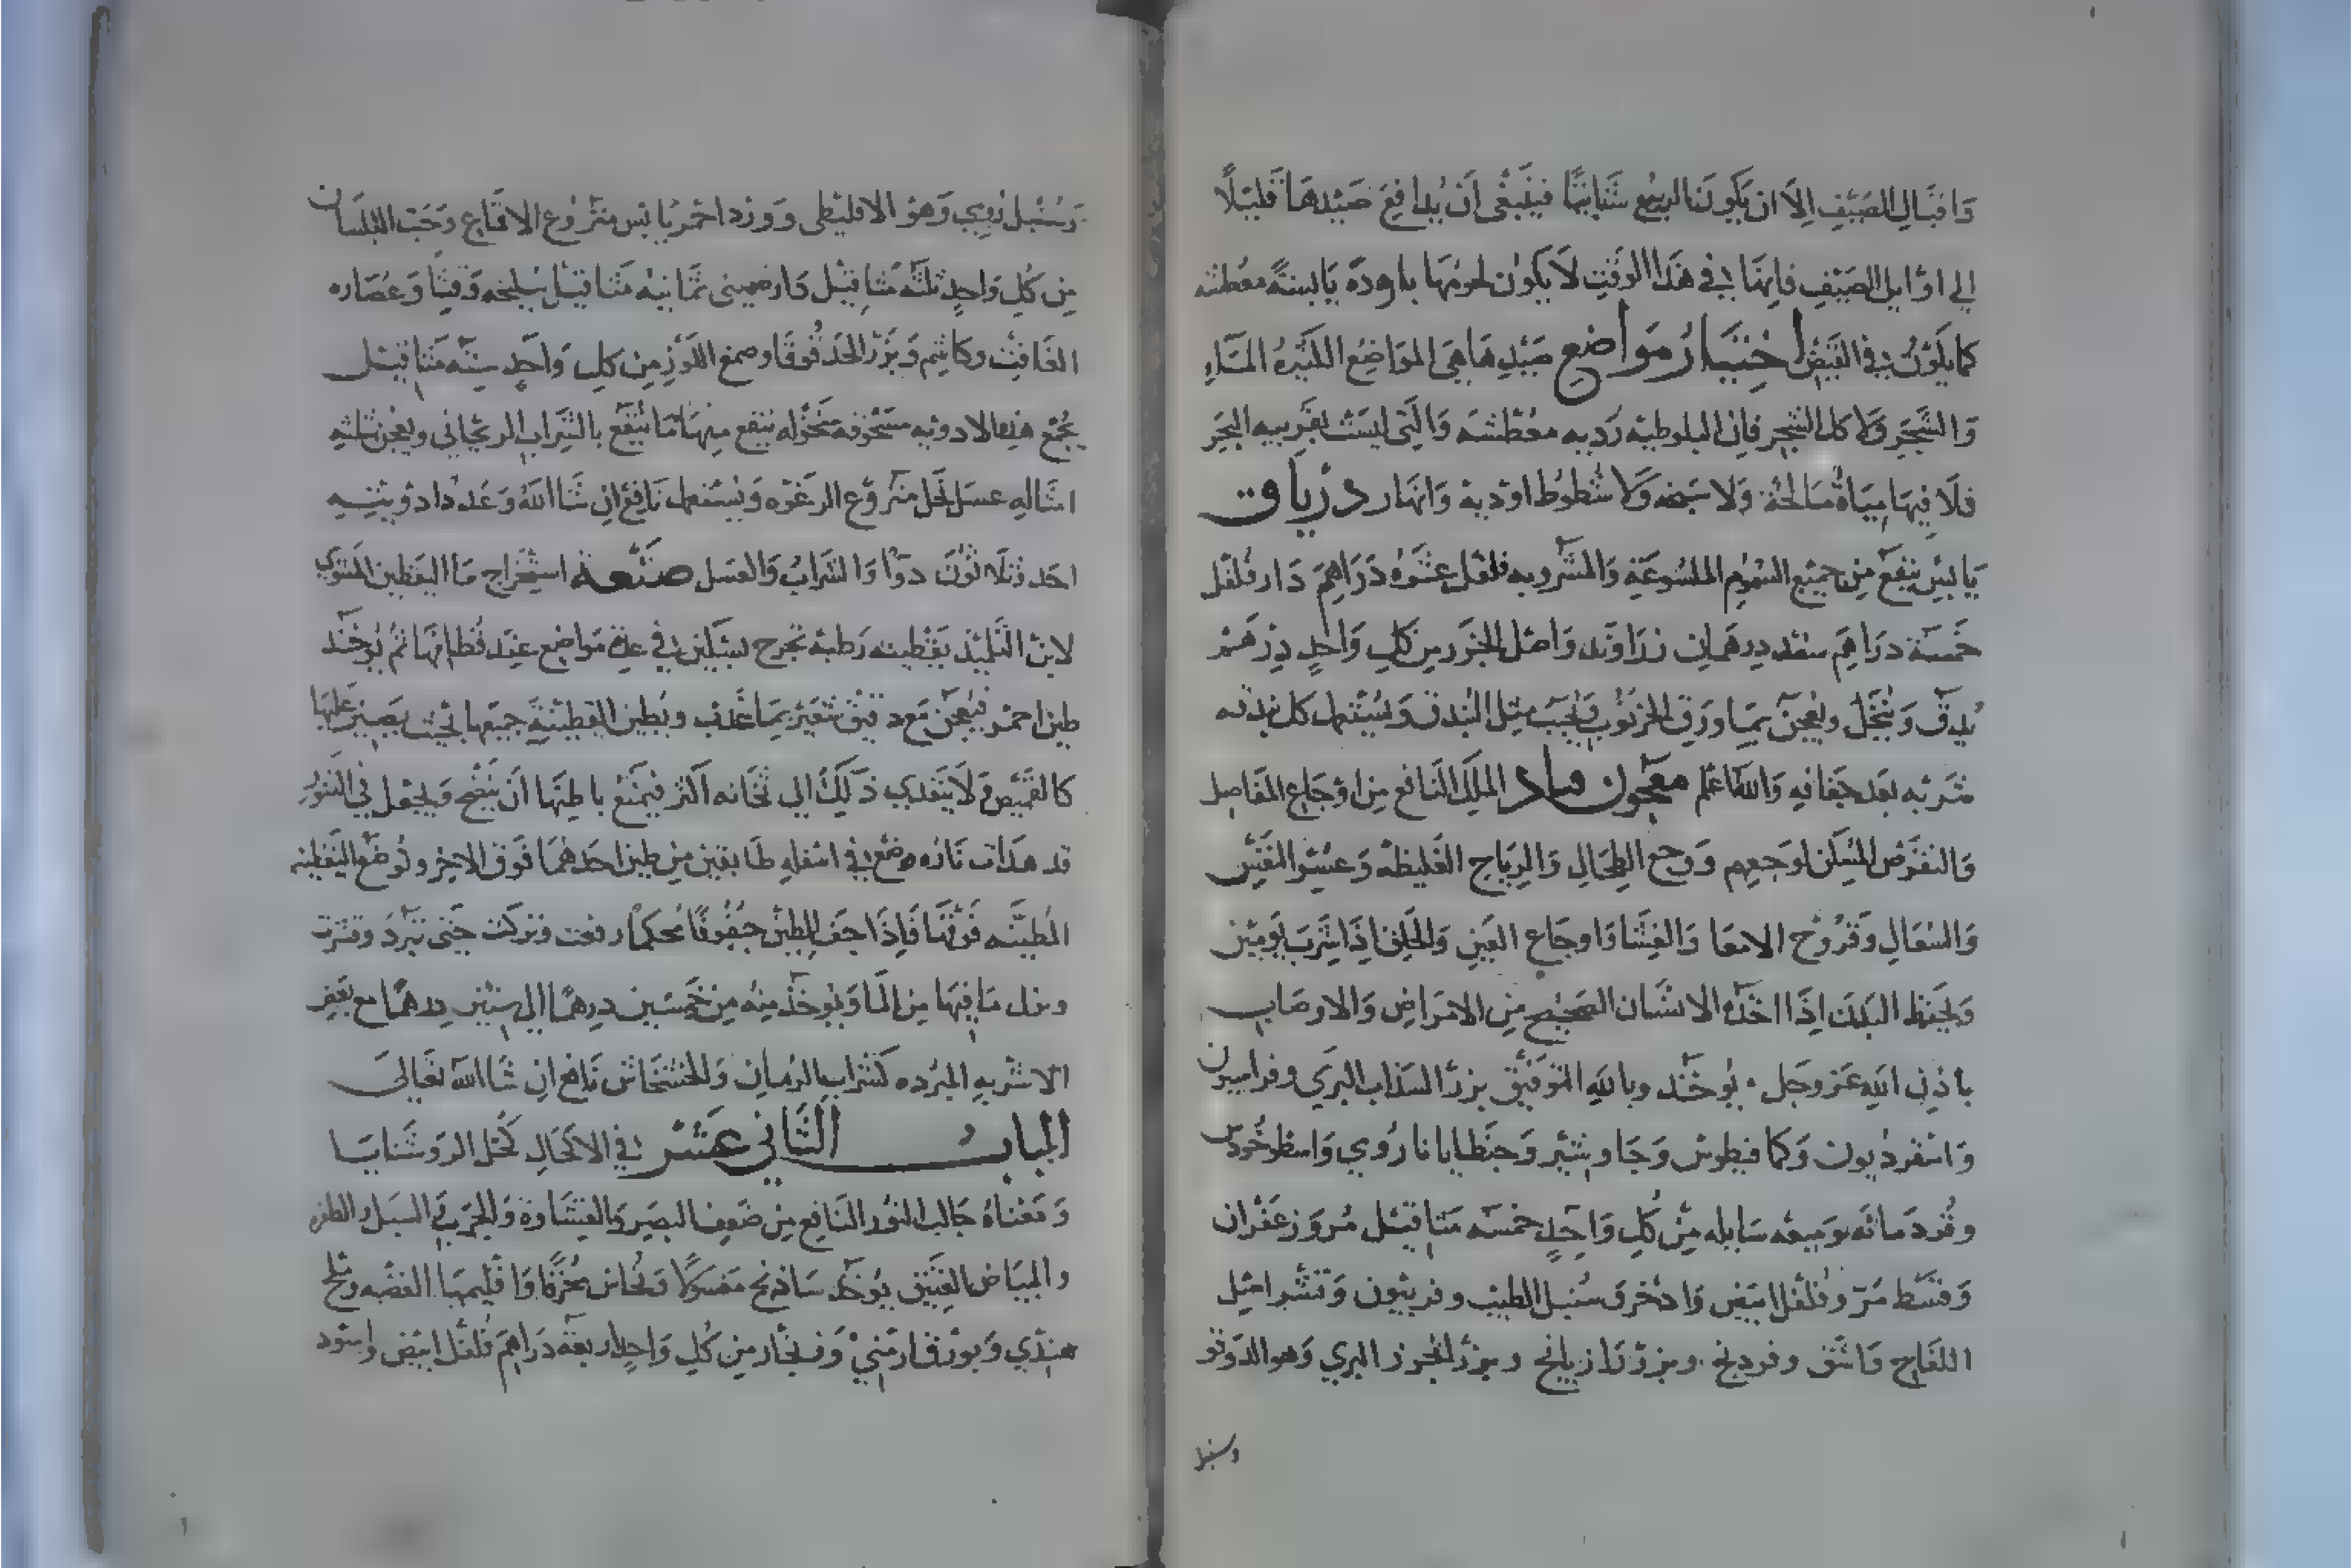 واقبال الصيف الا ان يكون الربيع شتائيا فينبغى ان يدافع صيدها قليلا
الى اوايل الصيف فانها فى هذا الوقت لا يكون لحومها بارده يابسة معطشه
كما يكون فى القيض اختيار مواضع صيدها هى المواضع الكثيره الماء
والشجر ولا كل الشجر فان البلوطيه رديه معطشه والتى ليست بقريبه البحر
فلا فيها مياة مالحة ولا سبخه ولا شطوط اودية وانهار درياق
يابس ينفع من جميع السموم الملسوعة والمشروبه فلفل عشرة دراهم دار فلفل
خمسة دراهم سعد درهمان زراوند واصل الجزر من كل واحد درهم
يدق وينخل ويعجن بما ورق الخرنوب ويحبب مثل البندق ويستعمل كل بندقه
شربه بعد جفافه والله اعلم معجون الملك النافع من اوجاع المفاصل
والنقرس المسكن لوجعهم ووجع الطحال والرياح الغليظه وعسر النفس
والسعال وقروح الامعا والغشا واوجاع العين والحلق اذا شرب يومين
ويحفظ البدن اذا اخذه الانسان الصحيح من الامراض والاوصاب
باذن الله عز وجل يوخذ وبالله التوفيق بزر السذاب البري وفراسيون
واسقرديون وكمافيطوس وجاوشير وجنطايانا رومي واسطوخودس
وقردمانه وميعه سايله من كل واحد خمسه مثاقيل مر وزعفران
وقسط مر وفلفل ابيض واذخر وسنبل الطيب وفربيون وقشر اصل
اللفاح واشق وفودنج وبزر رازيانج وبزر الجزر البري وهو الدوقو
وسنبل
وسنبل رومي وهو الاقليطى وورد احمر يابس منزوع الاقماع وحب البلسان
من كل واحد ثلثه مثاقيل دارصينى ثمانيه مثاقيل سليخه وعصاره
الغافت وكاشم وبزر الحندقوقا وصمغ اللوز من كل واحد سته مثاقيل
يجمع هذه الادويه مسحوقه منخوله ينقع منها ما ينقع بالشراب الريحاني ويعجن بثلثه
امثاله عسل نحل منزوع الرغوه ويستعمل نافع ان شا الله وعدد ادويته
احد وثلاثون دوا والشراب والعسل صنعة استخراج ما اليقطين المشوي
لابن التلميذ يقطينه رطبه تجرح بسكين فى عدة مواضع عند قطانها ثم يوخذ
طين احمر فيعجن مع دقيق شعير بما عذب ويطين اليقطينة جميعها بحيث يصير عليها
كالقميص ولا يتعدي ذلك الى ثخانه اكثر فيمنع باطنها ان ينضج ويجعل في التنور
قد هدات ناره وضع فى اسفله طابقين من طين احدهما فوق الاخر وتوضع اليقطينه
المطينه فوقها فاذا جف الطين جفوفا محكما رفعت وتركت حتى تبرد وقشرت
ونزل ما فيها من الما ويوخذ منه من خمسين درهما الى ستين درهما مع بعض
الاشربه المبرده كشراب الرمان والخشخاش نافع ان شا الله تعالى
الباب الثاني عشر فى الاكحال كحل الروشنايا
ومعناه جالب النور النافع من ضعف البصر والغشاوة والجرب والسبل والظفره
والبياض العتيق يوخذ ساذنج مغسول ونحاس محرق واقليميا الفضه وملح
هندي وبورق ارمني وزنجار من كل واحد اربعة دراهم فلفل ابيض واسود